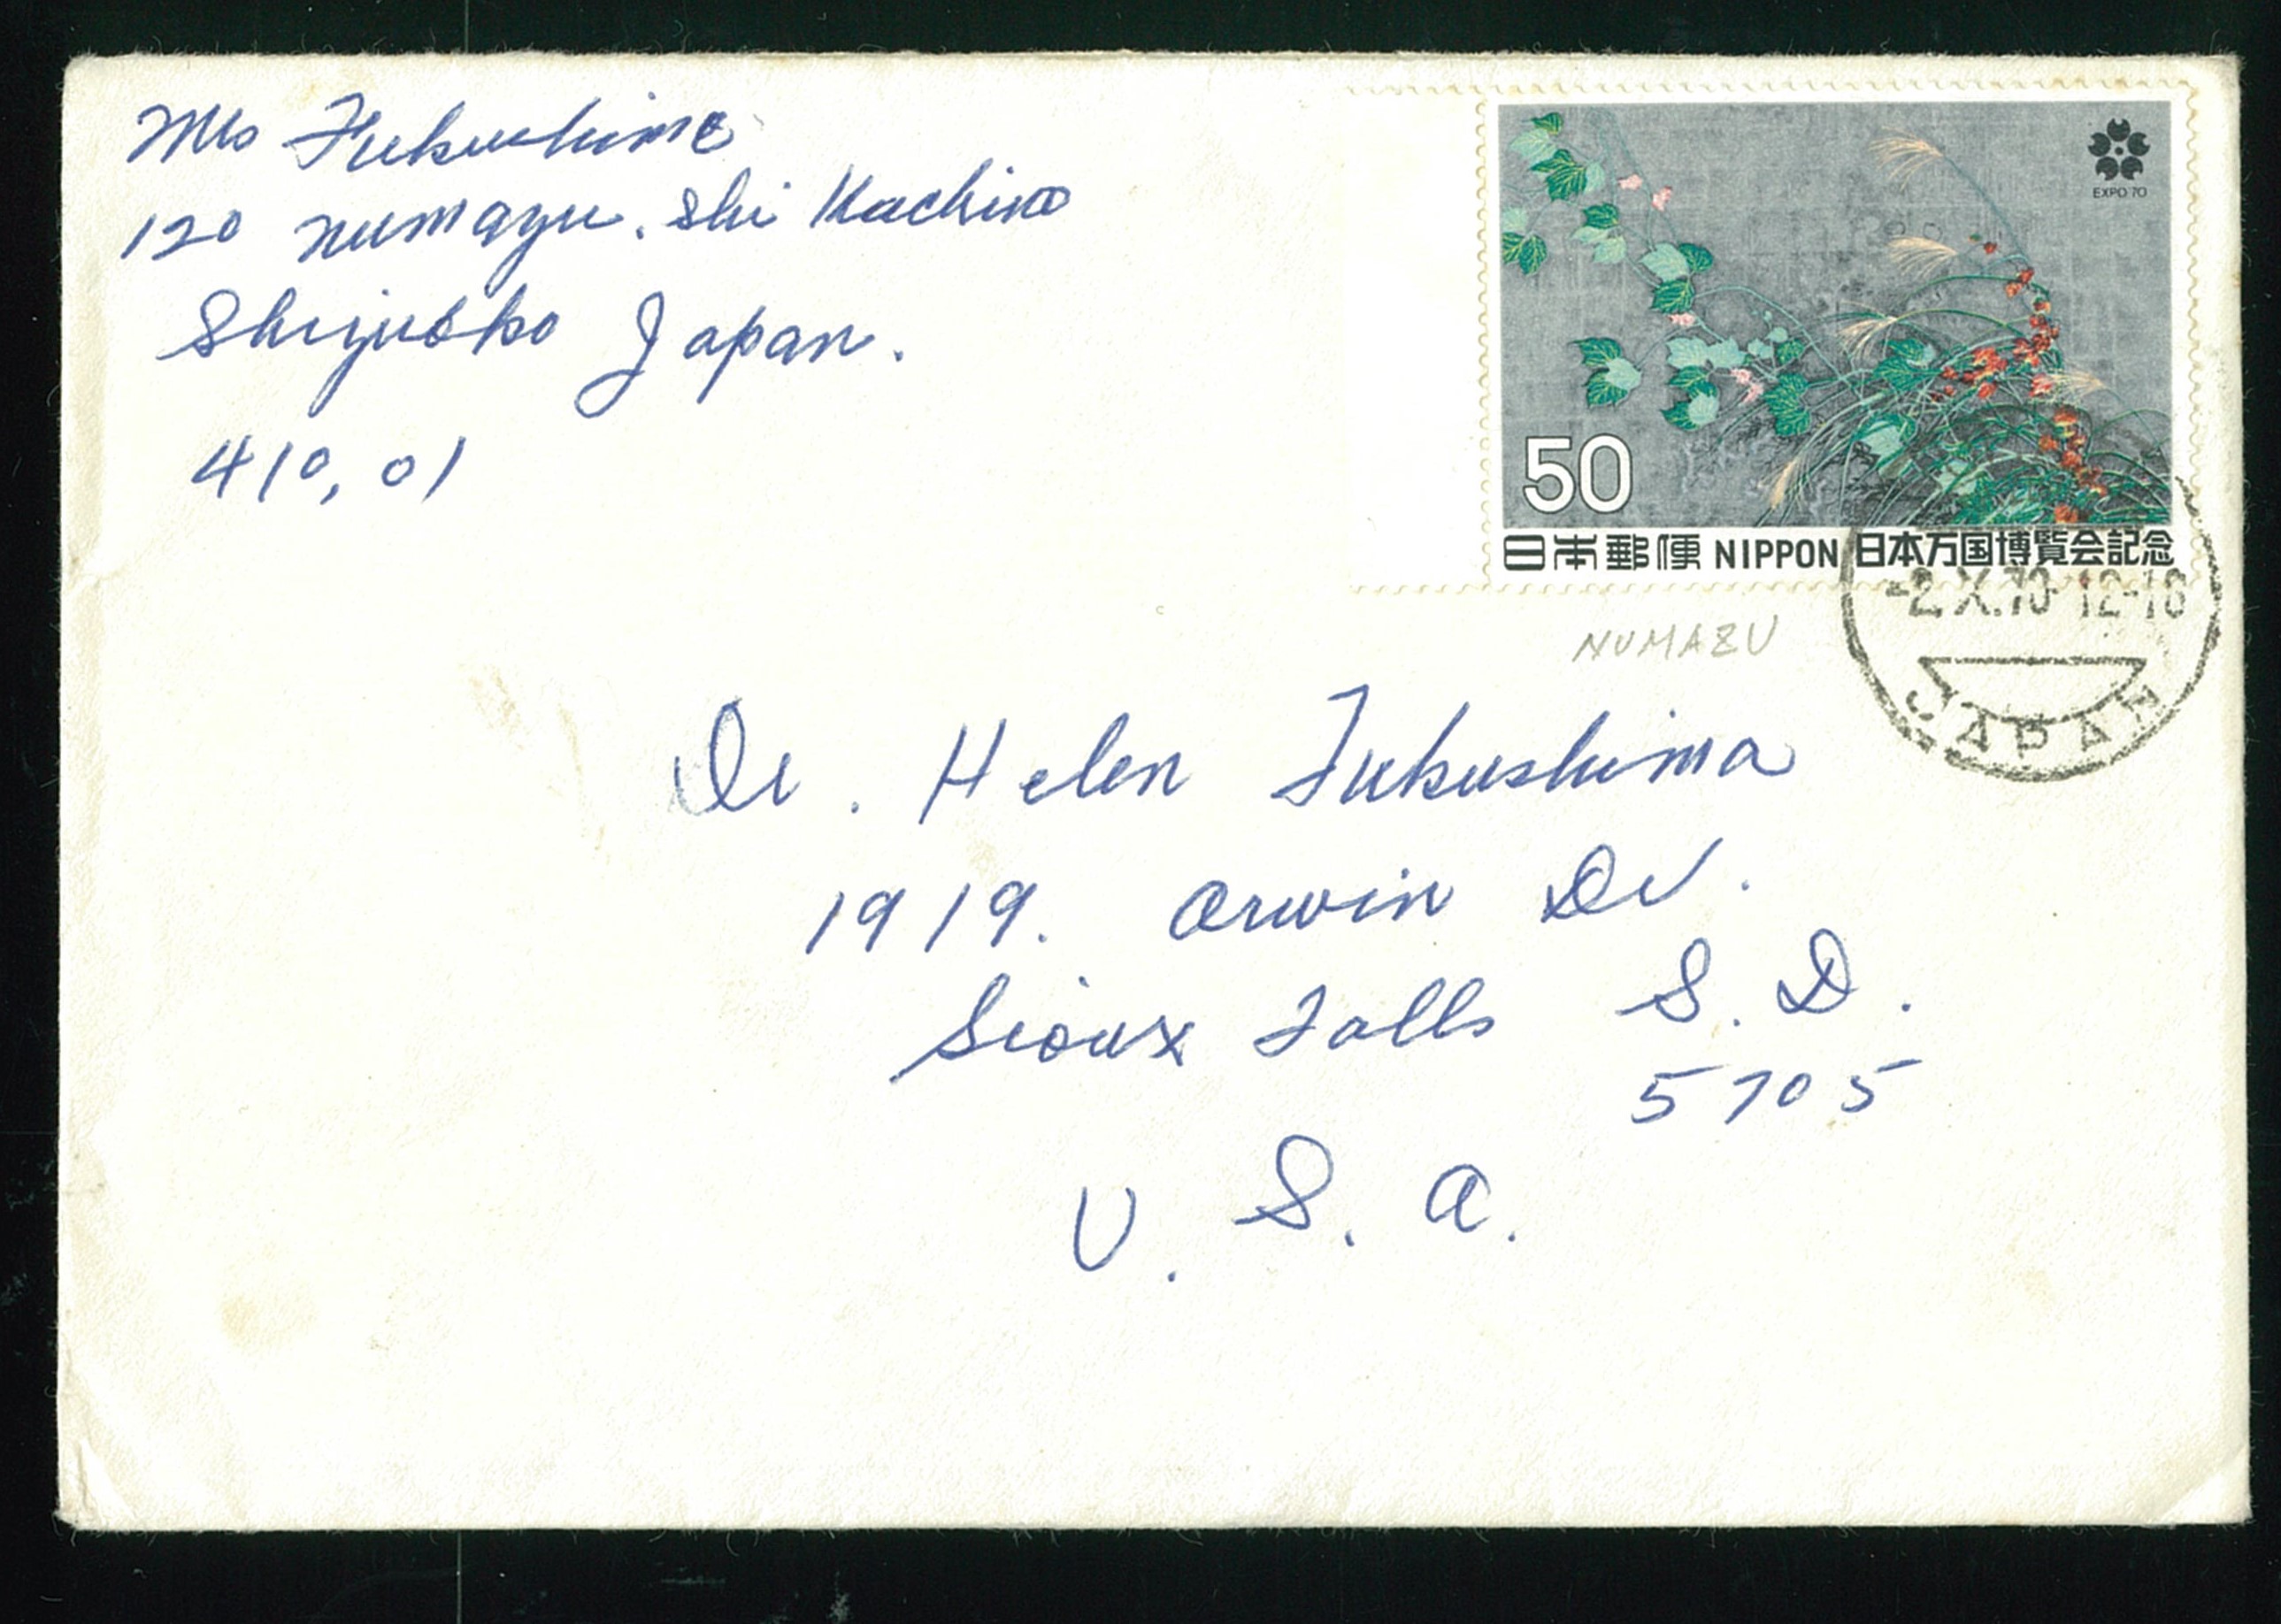 Mrs Fukushima
120 numazu. shi Kachino
Shizuoka Japan.
410, 01
EXPO'70
50
日本郵便 NIPPON 日本万国博覧会記念
-2.X.70 12-18
JAPAN
NUMAZU
Dr. Helen Fukushima
1919. Orwin Dr.
Sioux Falls S. D.
5705
U. S. A.